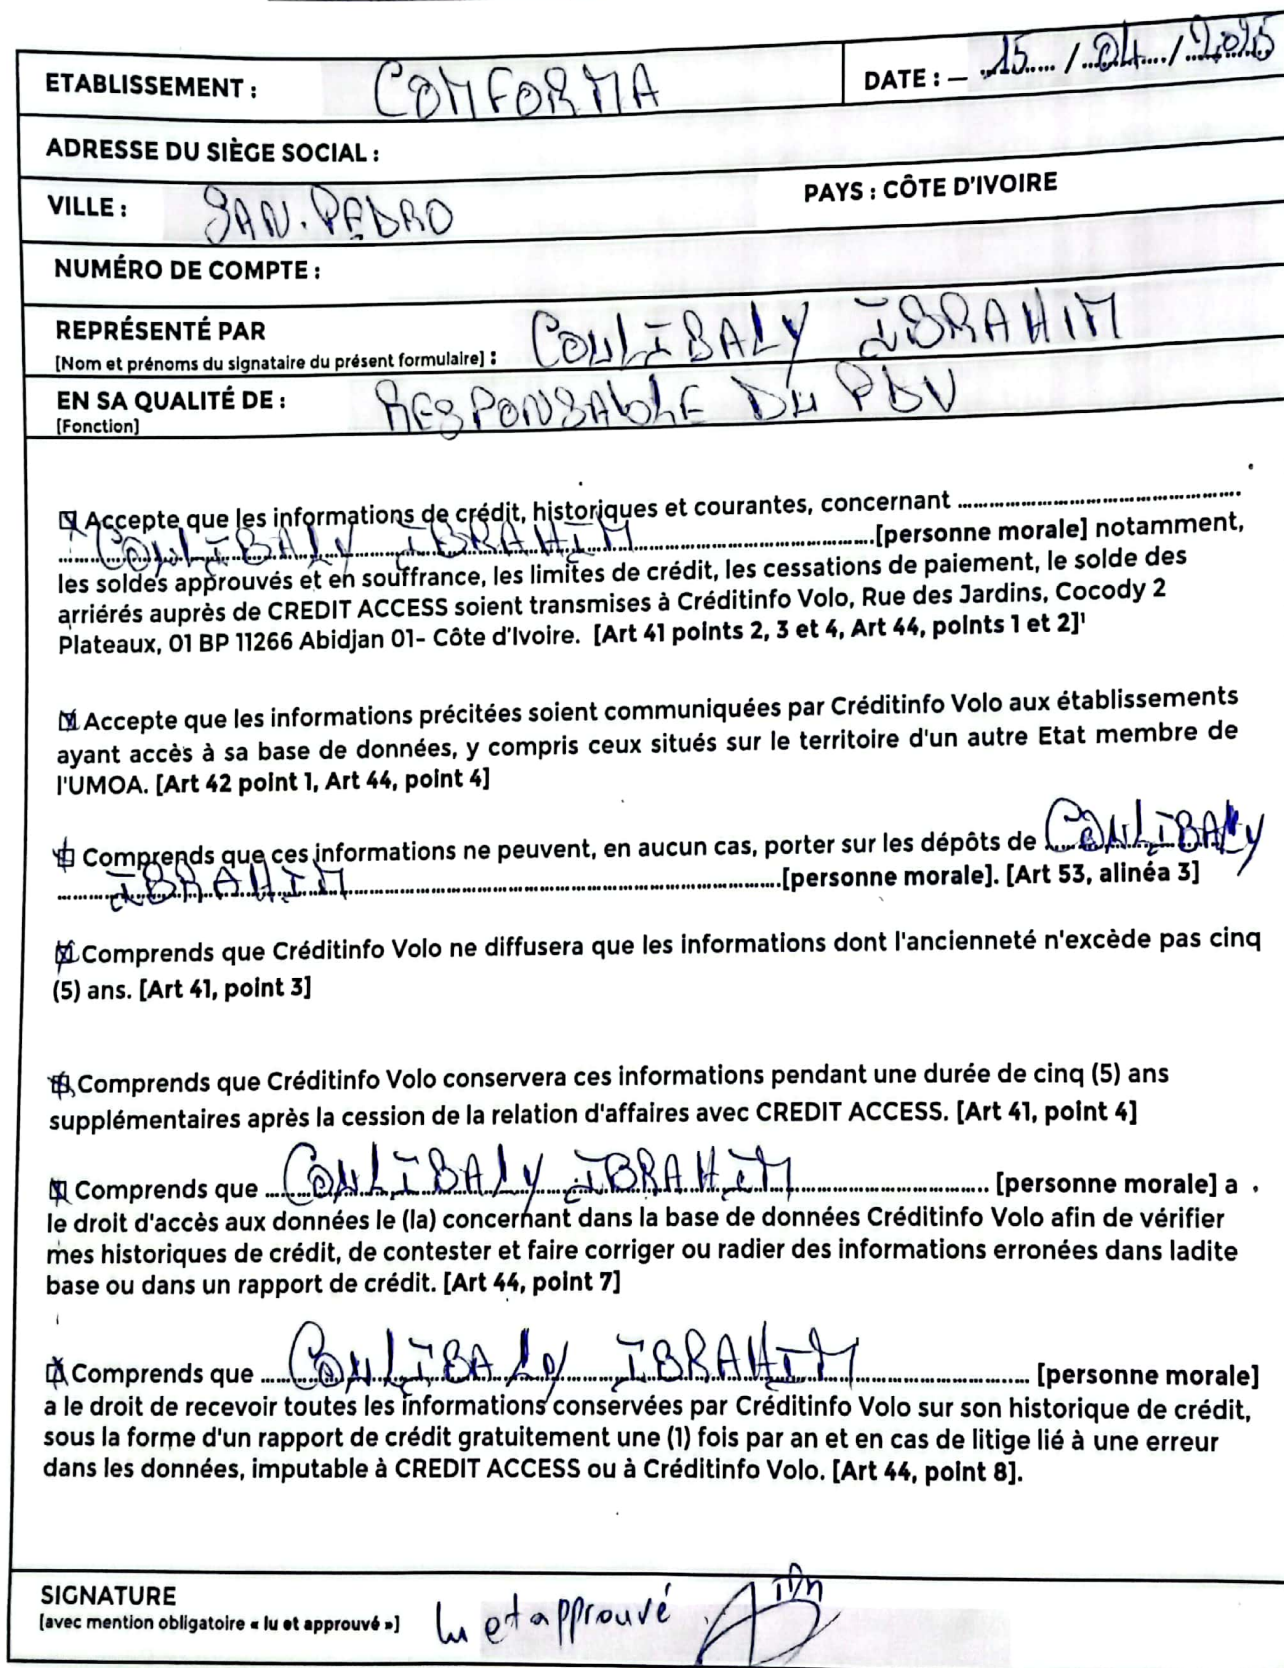 ETABLISSEMENT : CONFORMA DATE : – 15 / 04 / 2025
ADRESSE DU SIÈGE SOCIAL :
VILLE : SAN. PEDRO PAYS : CÔTE D'IVOIRE
NUMÉRO DE COMPTE :
REPRÉSENTÉ PAR
[Nom et prénoms du signataire du présent formulaire] : COULIBALY IBRAHIM
EN SA QUALITÉ DE : RESPONSABLE DU PDV
[Fonction]
Accepte que les informations de crédit, historiques et courantes, concernant
COULIBALY IBRAHIM [personne morale] notamment,
les soldes approuvés et en souffrance, les limites de crédit, les cessations de paiement, le solde des
arriérés auprès de CREDIT ACCESS soient transmises à Créditinfo Volo, Rue des Jardins, Cocody 2
Plateaux, 01 BP 11266 Abidjan 01- Côte d'Ivoire. [Art 41 points 2, 3 et 4, Art 44, points 1 et 2]¹
Accepte que les informations précitées soient communiquées par Créditinfo Volo aux établissements
ayant accès à sa base de données, y compris ceux situés sur le territoire d'un autre Etat membre de
l'UMOA. [Art 42 point 1, Art 44, point 4]
Comprends que ces informations ne peuvent, en aucun cas, porter sur les dépôts de COULIBALY
IBRAHIM [personne morale]. [Art 53, alinéa 3]
Comprends que Créditinfo Volo ne diffusera que les informations dont l'ancienneté n'excède pas cinq
(5) ans. [Art 41, point 3]
Comprends que Créditinfo Volo conservera ces informations pendant une durée de cinq (5) ans
supplémentaires après la cession de la relation d'affaires avec CREDIT ACCESS. [Art 41, point 4]
Comprends que COULIBALY IBRAHIM [personne morale] a
le droit d'accès aux données le (la) concernant dans la base de données Créditinfo Volo afin de vérifier
mes historiques de crédit, de contester et faire corriger ou radier des informations erronées dans ladite
base ou dans un rapport de crédit. [Art 44, point 7]
Comprends que COULIBALY IBRAHIM [personne morale]
a le droit de recevoir toutes les informations conservées par Créditinfo Volo sur son historique de crédit,
sous la forme d'un rapport de crédit gratuitement une (1) fois par an et en cas de litige lié à une erreur
dans les données, imputable à CREDIT ACCESS ou à Créditinfo Volo. [Art 44, point 8].
SIGNATURE
[avec mention obligatoire « lu et approuvé »] lu et approuvé